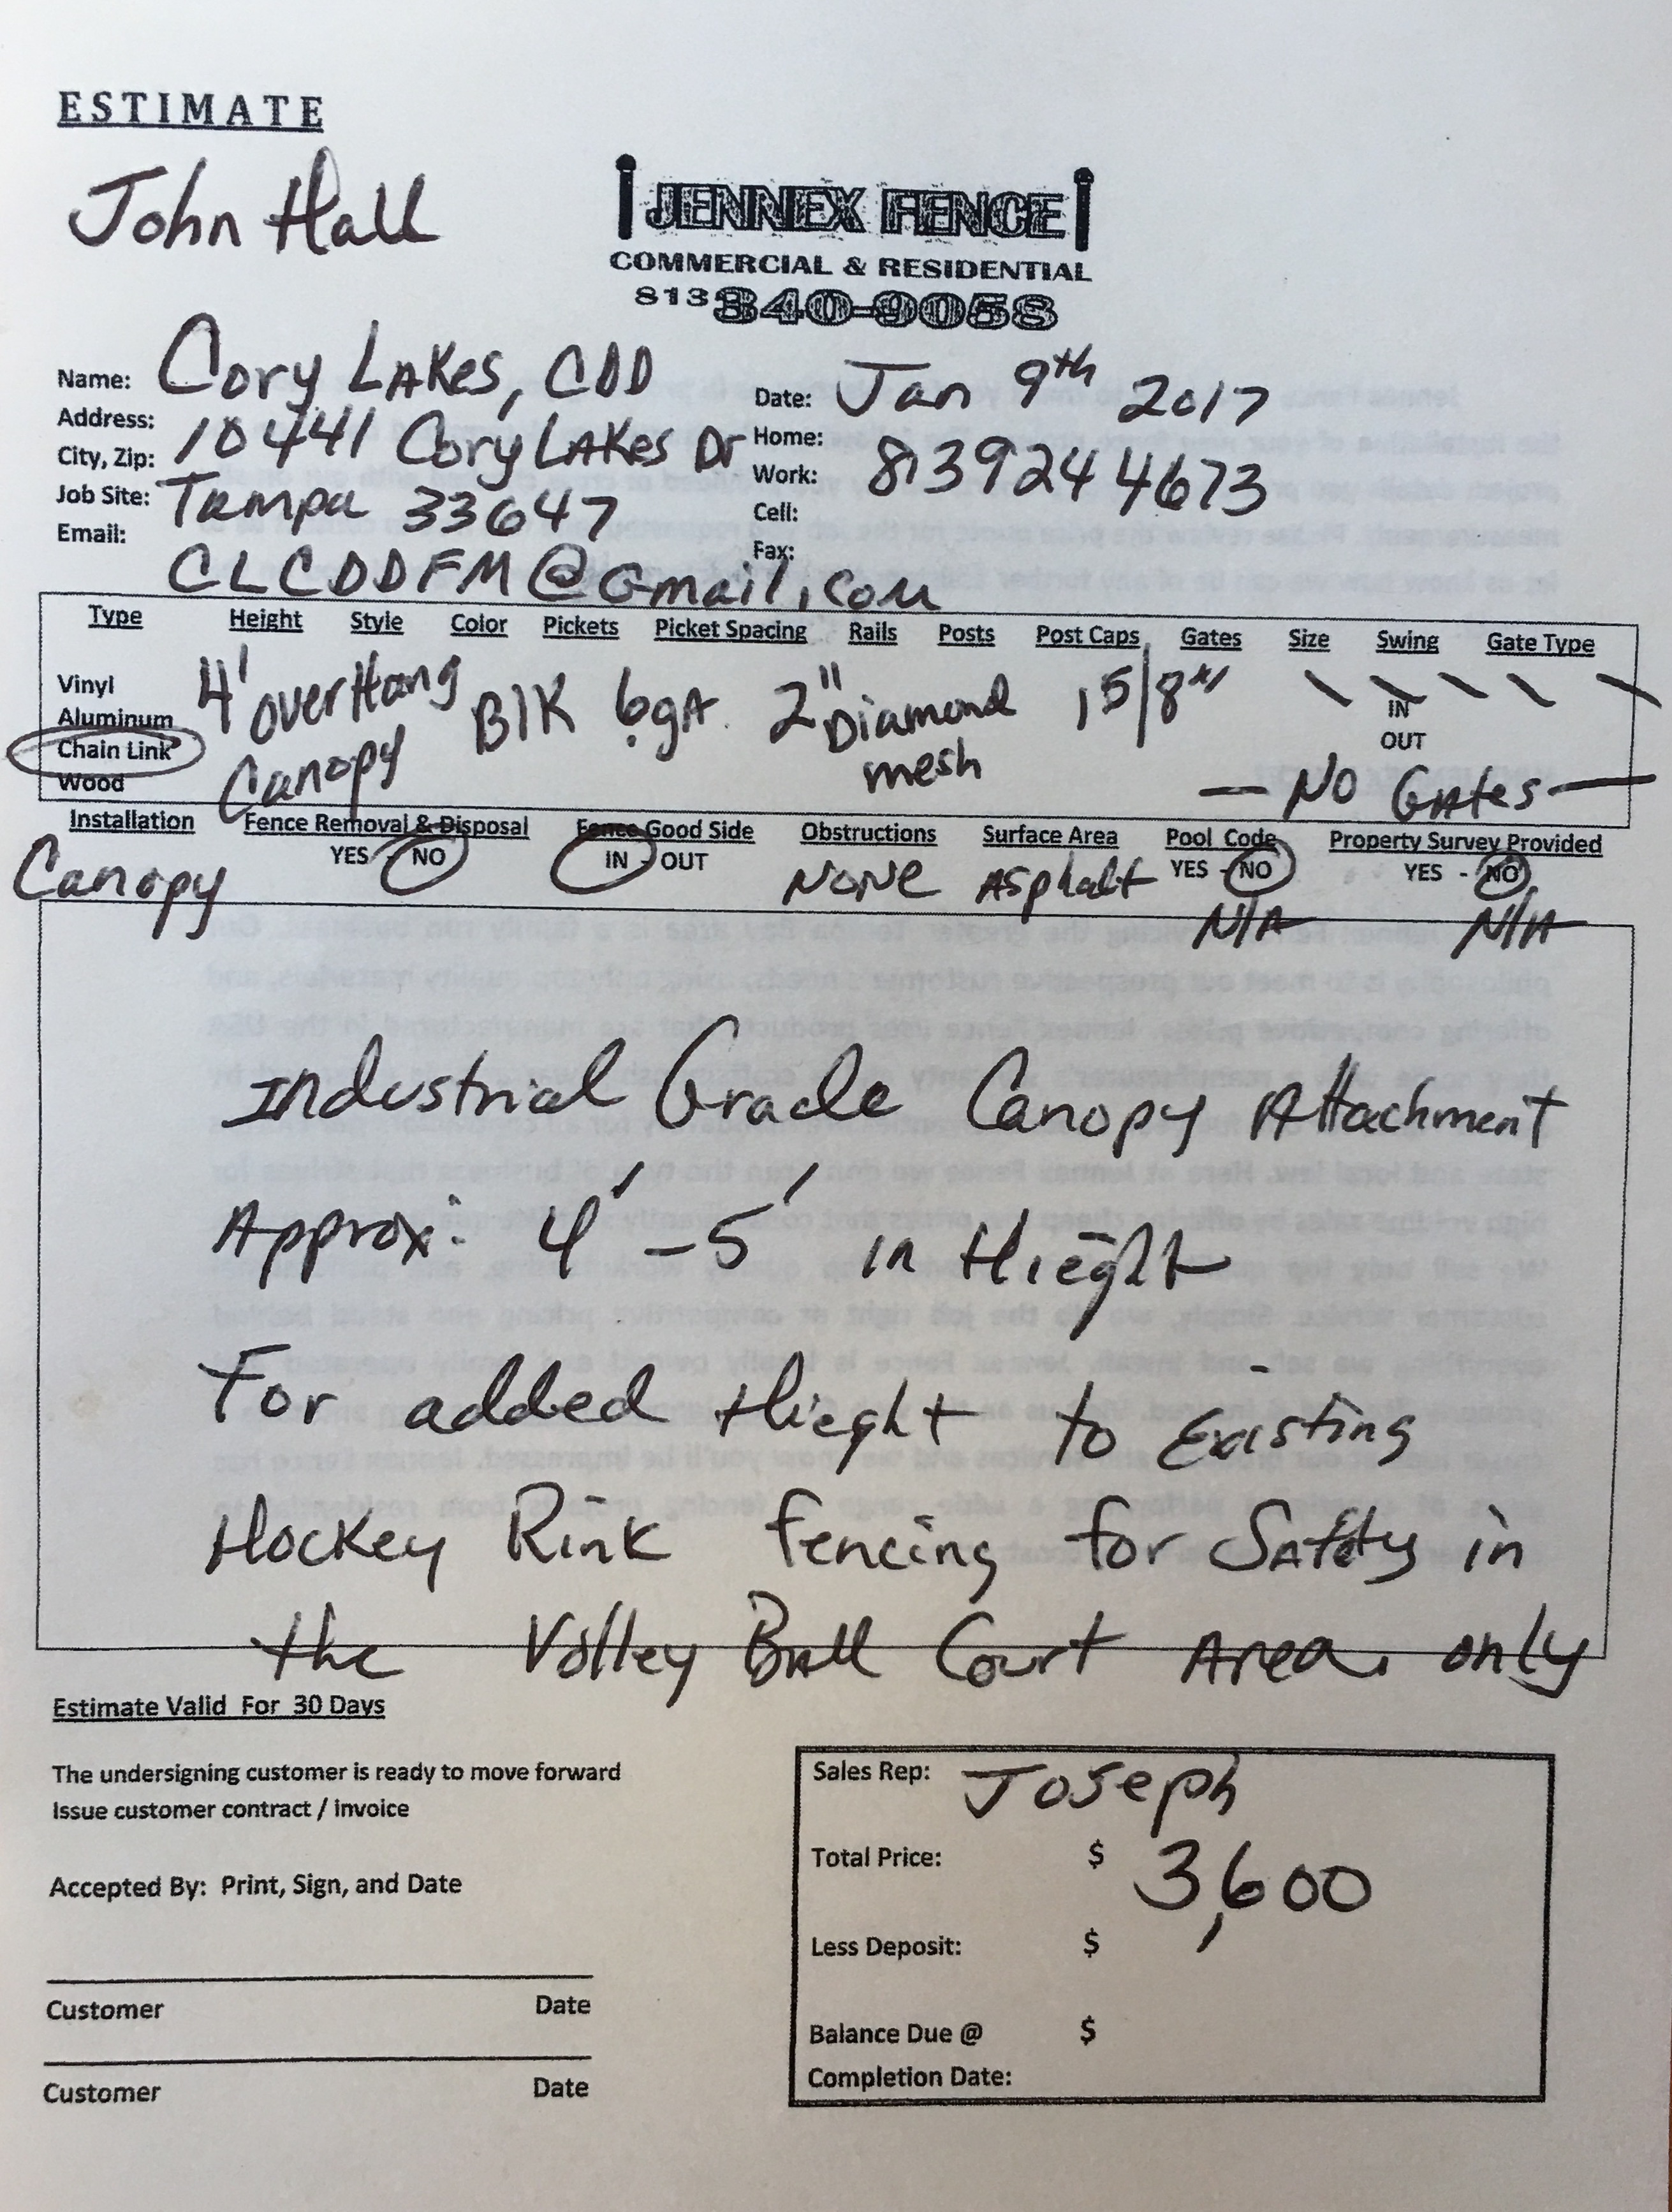 ESTIMATE
John Hall
JENNEX FENCE
COMMERCIAL & RESIDENTIAL
813 340-9058
Name: Cory LAKes, CDD
Date: Jan 9th 2017
Address: 10441 Cory LAKes Dr
Home:
City, Zip:
Work: 8139244673
Job Site: Tampa 33647
Cell:
Email: CLCDDFM@Gmail.com
Fax:
Type Height Style Color Pickets Picket Spacing Rails Posts Post Caps Gates Size Swing Gate Type
Vinyl
Aluminum
Chain Link
Wood
4' overHang Canopy BlK 6gA. 2" Diamond mesh 1 5/8"
IN
OUT
— NO GAtes —
Installation Fence Removal & Disposal Fence Good Side Obstructions Surface Area Pool Code Property Survey Provided
Canopy YES - NO IN - OUT NONE Asphalt YES - NO YES - NO
N/A N/A
Industrial Grade Canopy Attachment
Approx: 4' - 5' in Hieght
For added Hieght to Existing
Hockey Rink fencing for SAfety in
the Volley BAll Court Area only
Estimate Valid For 30 Days
The undersigning customer is ready to move forward
Issue customer contract / invoice
Accepted By: Print, Sign, and Date
Customer Date
Customer Date
Sales Rep: Joseph
Total Price: $ 3,600
Less Deposit: $
Balance Due @ $
Completion Date: